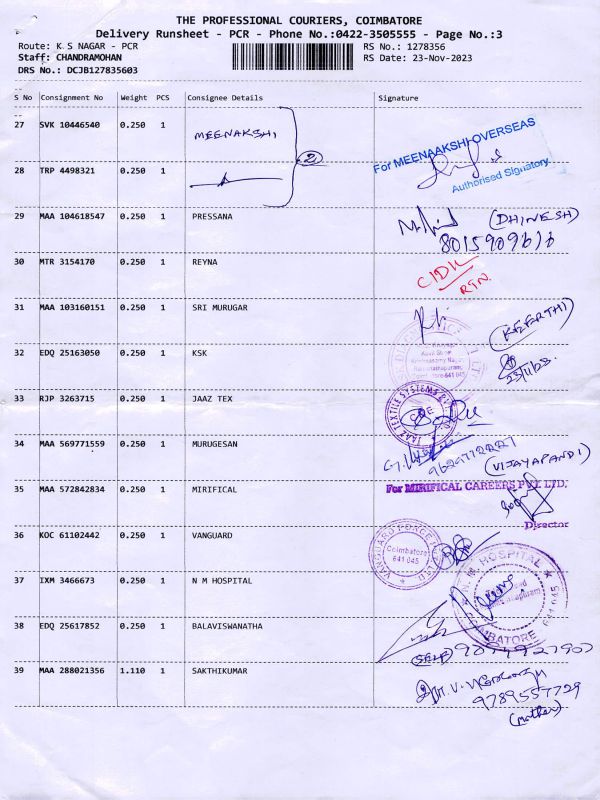 THE PROFESSIONAL COURIERS, COIMBATORE
Delivery Runsheet - PCR - Phone No.:0422-3505555 - Page No.:3
Route: K.S NAGAR - PCR
RS No.: 1278356
Staff: CHANDRAMOHAN
RS Date: 23-Nov-2023
DRS No.: DCJB127835603
S No Consignment No Weight PCS Consignee Details Signature
27 SVK 10446540 0.250 1 MEENAKSHI
②
For MEENAAKSHI OVERSEAS
28 TRP 4498321 0.250 1
Authorised Signatory
29 MAA 104618547 0.250 1 PRESSANA
(DHINESH)
30 MTR 3154170 0.250 1 REYNA
RTN
31 MAA 103160151 0.250 1 SRI MURUGAR
(KEERTHI)
32 EDQ 25163050 0.250 1 KSK
23/11/23
33 RJP 3263715 0.250 1 JAAZ TEX
JAAZ TEXTILE SYSTEMS PVT. LTD.
CBE
34 MAA 569771559 0.250 1 MURUGESAN
(VIJAYAPANDI)
35 MAA 572842834 0.250 1 MIRIFICAL
For MIRIFICAL CAREERS PVT. LTD.
Director
36 KOC 61102442 0.250 1 VANGUARD
Coimbatore
641 045
37 IXM 3466673 0.250 1 N M HOSPITAL
N. M. HOSPITAL
COIMBATORE 641 045
38 EDQ 25617852 0.250 1 BALAVISWANATHA
(SELF)
39 MAA 288021356 1.110 1 SAKTHIKUMAR
9789557729
(mother)